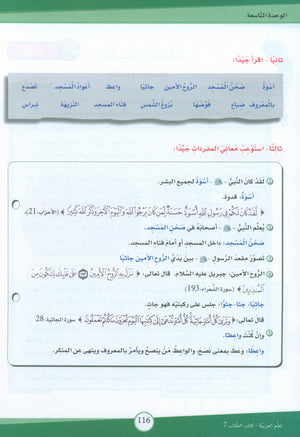 الوحدة التاسعة
ثانيًا - اقرأ جيدًا:
أسوة صحن المسجد الروح الأمين جاثيًا واعظ أعواد المسجد تصدع
بالمعروف ضياع فوضها بزوغ الشمس فناء المسجد النزيهة نبراس
ثالثًا - استوعب معاني المفردات جيدًا:
لقد كان النبي ﷺ - أسوة لجميع البشر.
أسوة: قدوة.
﴿ لَقَدْ كَانَ لَكُمْ فِي رَسُولِ اللَّهِ أُسْوَةٌ حَسَنَةٌ لِمَنْ كَانَ يَرْجُو اللَّهَ وَالْيَوْمَ الْآخِرَ وَذَكَرَ اللَّهَ كَثِيرًا ﴾ (الأحزاب 21).
يعلم النبي ﷺ - أصحابه في صحن المسجد.
صحن المسجد: داخل المسجد أو أمام فناء المسجد.
تصور مقعد الرسول ﷺ - بين يدي الروح الأمين جاثيًا
الروح الأمين: جبريل عليه السلام. قال تعالى: ﴿ نَزَلَ بِهِ الرُّوحُ الْأَمِينُ ۝ عَلَى قَلْبِكَ لِتَكُونَ مِنَ
الْمُنْذِرِينَ ﴾ (سورة الشعراء، 193)
جاثيًا، جثا، جثوًا: جلس على ركبتيه فهو جاث.
قال تعالى: ﴿ وَتَرَى كُلَّ أُمَّةٍ جَاثِيَةً كُلُّ أُمَّةٍ تُدْعَى إِلَى كِتَابِهَا الْيَوْمَ تُجْزَوْنَ مَا كُنْتُمْ تَعْمَلُونَ ﴾ سورة الجاثية، 28
وإن كنت واعظا.
واعظا: وعظ بمعنى نصح، والواعظ من ينصح ويأمر بالمعروف وينهى عن المنكر.
116
تعلم العربية - كتاب الطالب 7